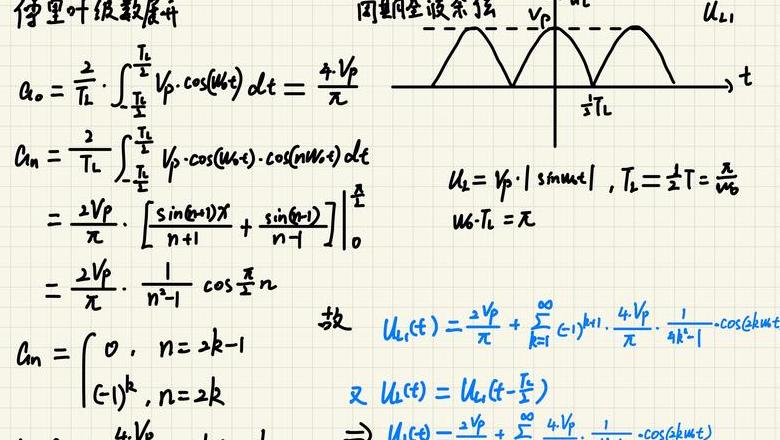 傅里叶级数展开
a₀ = 2/T_L · ∫_{-T_L/2}^{T_L/2} Vp·cos(ω₀t) dt = 4·Vp/π
aₙ = 2/T_L ∫_{-T_L/2}^{T_L/2} Vp·cos(ω₀t)·cos(nω₀t) dt
= 2Vp/π · [sin(n+1)x/n+1 + sin(n-1)/n-1] |_0^{π/2}
= 2Vp/π · 1/n²-1 cos π/2 n
aₙ = { 0 , n=2k-1
(-1)^k , n=2k
4·Vp
周期全波余弦
Vp
U_{L1}
t
½T_L
U_L = Vp·|sinω₀t| , T_L = ½T = π/ω₀
ω₀·T_L = π
故 U_{L1}(t) = 2Vp/π + ∑_{k=1}^{∞} (-1)^{k+1} · 4·Vp/π · 1/4k²-1 ·cos(2kω₀t
又 U_L(t) = U_{L1}(t-T_L/2)
⇒ U_L(t) = 2Vp/π + ∑^∞ 4·Vp/π · 1 ·cos(2kω₀t)